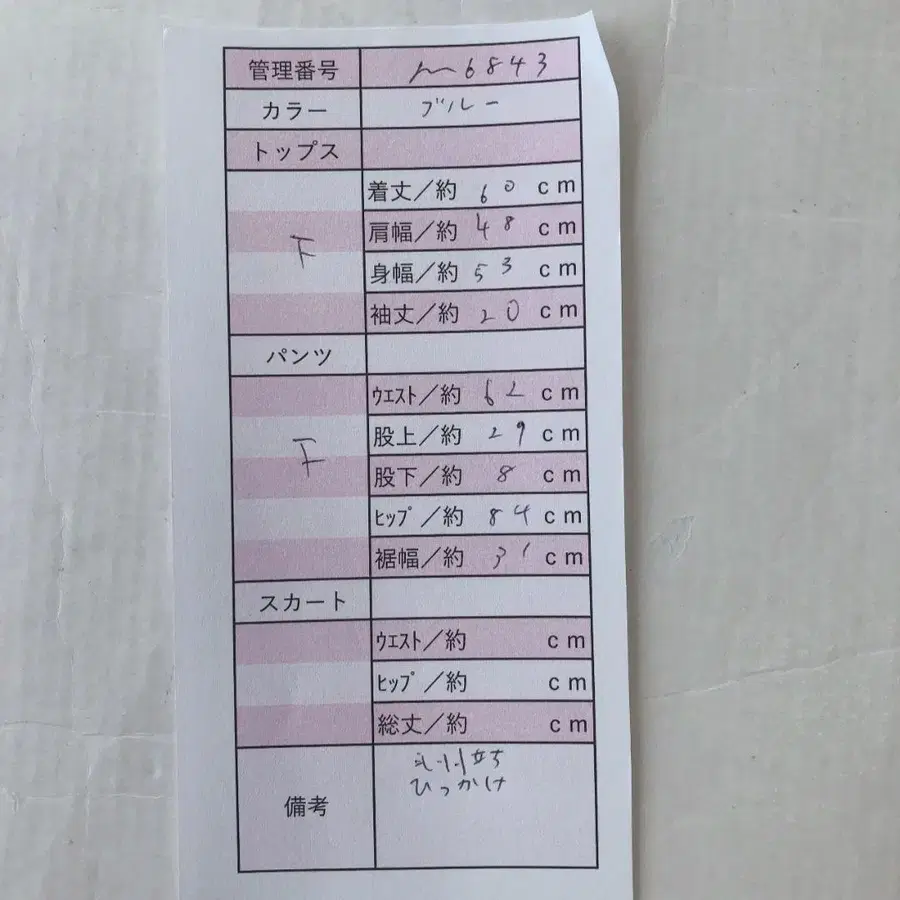 管理番号 m6843
カラー ブルー
トップス
F
着丈/約 60 cm
肩幅/約 48 cm
身幅/約 53 cm
袖丈/約 20 cm
パンツ
F
ウエスト/約 62 cm
股上/約 29 cm
股下/約 8 cm
ヒップ/約 84 cm
裾幅/約 31 cm
スカート
ウエスト/約 cm
ヒップ/約 cm
総丈/約 cm
備考
毛羽立ち
ひっかけ